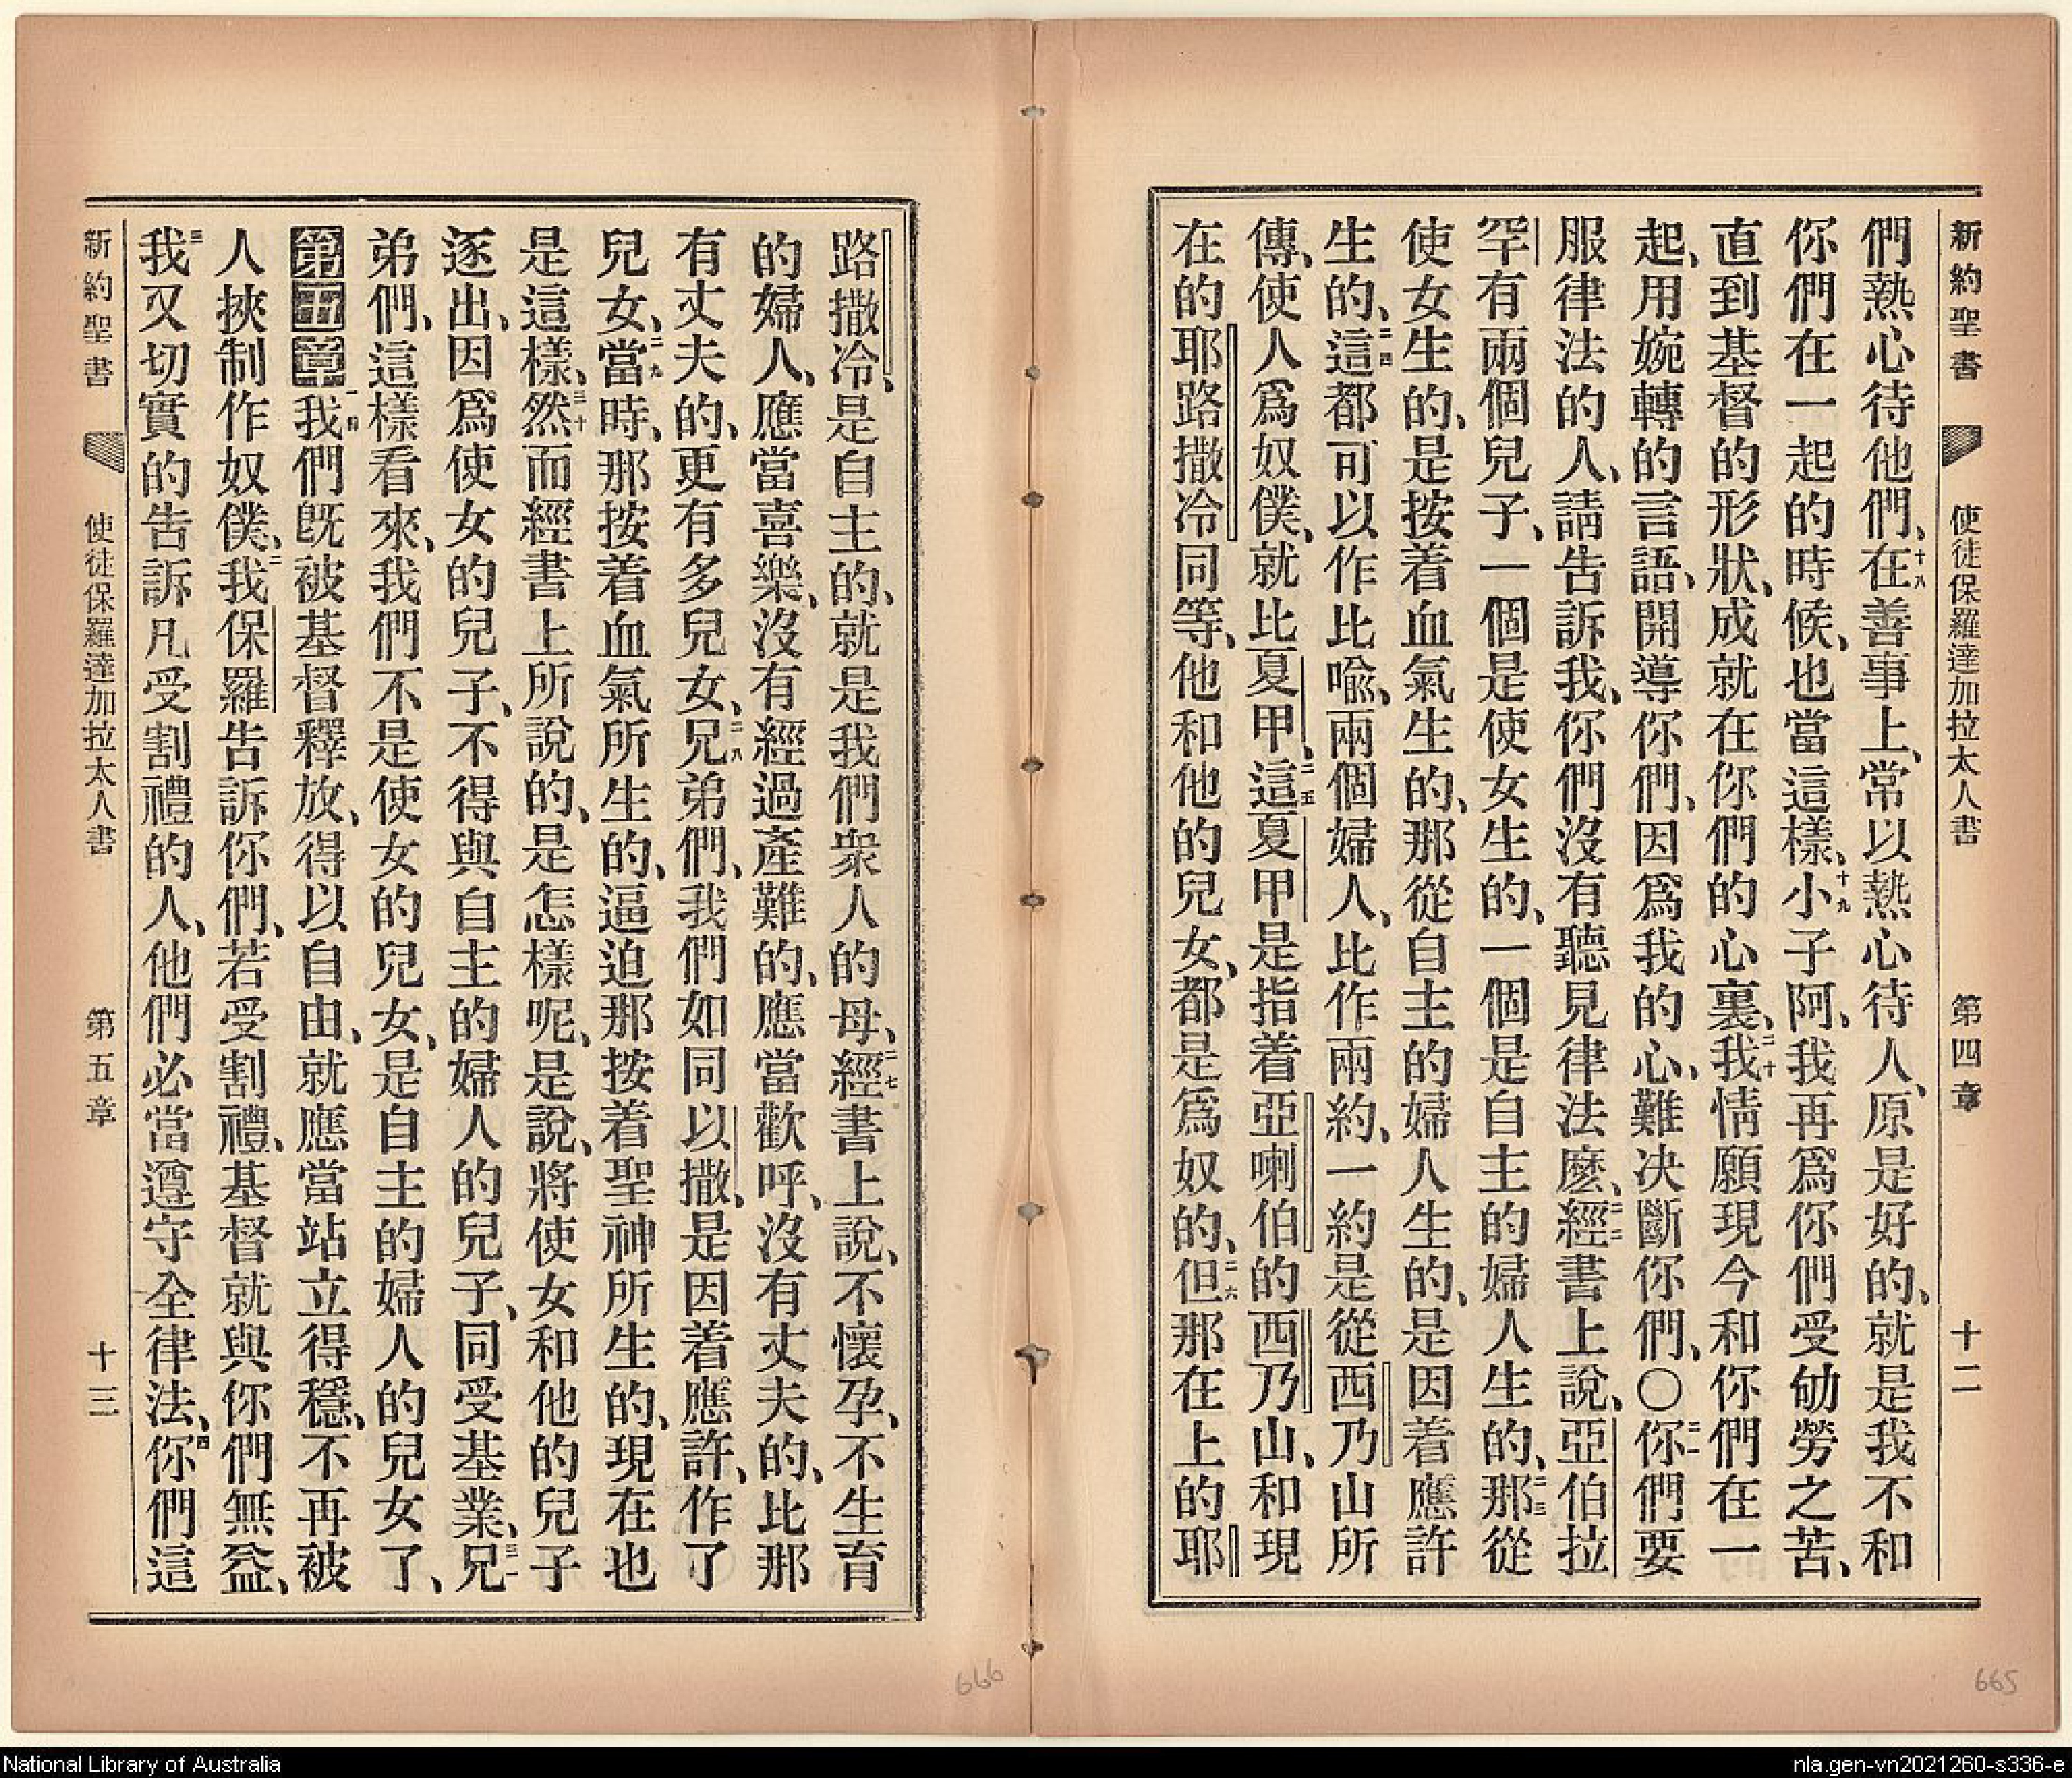 新約聖書 使徒保羅達加拉太人書 第四章 十二
們熱心待他們、十八在善事上、常以熱心待人、原是好的、就是我不和
你們在一起的時候、也當這樣、十九小子阿、我再爲你們受劬勞之苦、
直到基督的形狀、成就在你們的心裏、二十我情願現今和你們在一
起、用婉轉的言語、開導你們、因爲我的心、難决斷你們、〇二一你們要
服律法的人、請告訴我、你們沒有聽見律法麽、二二經書上說、亞伯拉
罕有兩個兒子、一個是使女生的、一個是自主的婦人生的、二三那從
使女生的、是按着血氣生的、那從自主的婦人生的、是因着應許
生的、二四這都可以作比喩、兩個婦人、比作兩約、一約是從西乃山所
傳、使人爲奴僕、就比夏甲、二五這夏甲是指着亞喇伯的西乃山、和現
在的耶路撒冷同等、他和他的兒女、都是爲奴的、二六但那在上的耶
路撒冷、是自主的、就是我們衆人的母、二七經書上說、不懷孕、不生育
的婦人、應當喜樂、沒有經過產難的、應當歡呼、沒有丈夫的、比那
有丈夫的、更有多兒女、二八兄弟們、我們如同以撒、是因着應許、作了
兒女、二九當時、那按着血氣所生的、逼迫那按着聖神所生的、現在也
是這樣、三十然而經書上所說的、是怎樣呢、是說、將使女和他的兒子
逐出、因爲使女的兒子、不得與自主的婦人的兒子、同受基業、三一兄
弟們、這樣看來、我們不是使女的兒女、是自主的婦人的兒女了、
第五章一節我們旣被基督釋放、得以自由、就應當站立得穩、不再被
人挾制作奴僕、二我保羅告訴你們、若受割禮、基督就與你們無益、
三我又切實的告訴凡受割禮的人、他們必當遵守全律法、四你們這
新約聖書 使徒保羅達加拉太人書 第五章 十三
666
665
National Library of Australia
nla.gen-vn2021260-s336-e